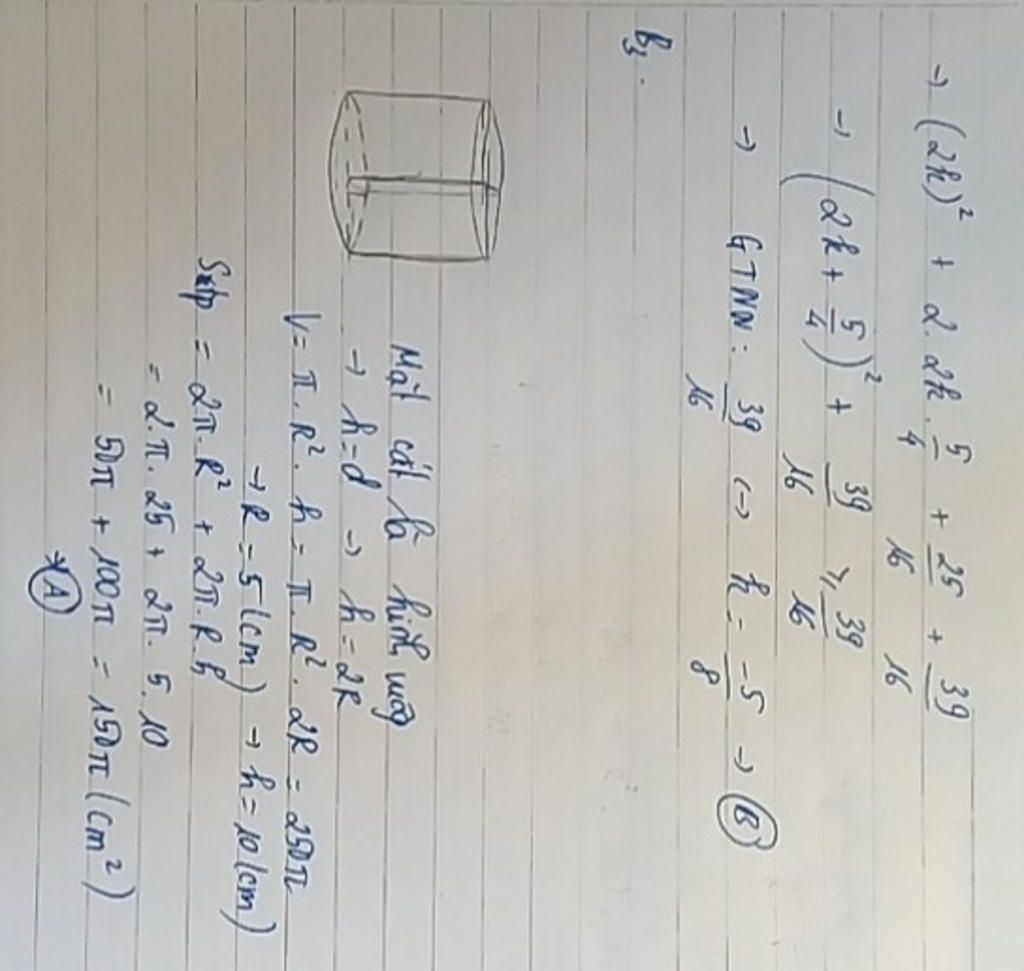 → (2k)² + 2. 2k. 5/4 + 25/16 + 39/16
→ (2k + 5/4)² + 39/16 ≥ 39/16
→ GTNN: 39/16 ↔ k = -5/8 → B
B3.
Mặt cắt là hình
→ h = d → h = 2R
V = π. R². h = π. R². 2R = 250π
→ R = 5 (cm) → h = 10 (cm)
= 2π. R² + 2π. R. h
= 2. π. 25 + 2π. 5. 10
= 50π + 100π = 150π (cm²)
* A